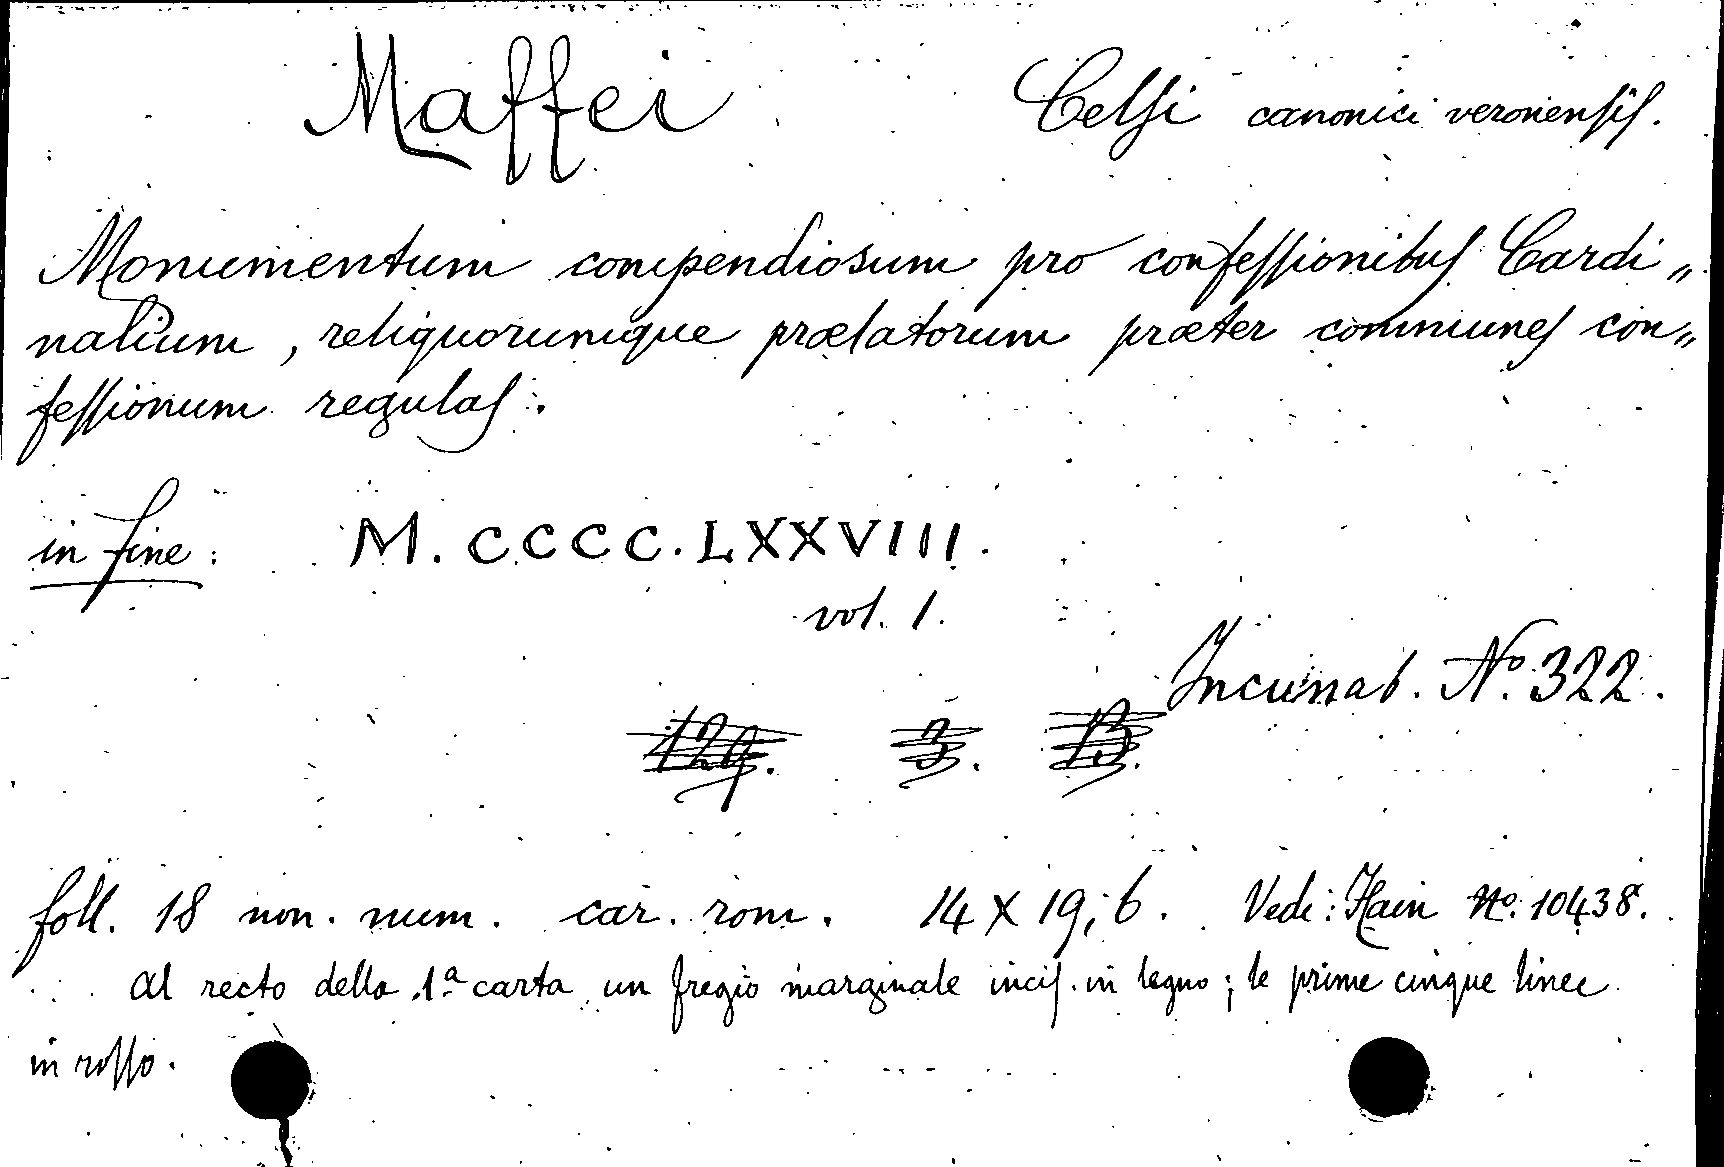 Maffei Celsi canonici veronensis.
Monumentum compendiosum pro confessionibus Cardi„
nalium, reliquorumque prælatorum præter communes con„
fessionum regulas.
in fine: M. CCCC. LXXVIII.
vol. 1.
Incunab. Nº. 322.
129. 3. 13.
foll. 18 non. num. car. rom. 14 X 19,6. Vedi: Hain Nº. 10438.
Al recto della 1ª carta un fregio marginale incis. in legno; le prime cinque linee
in rosso.